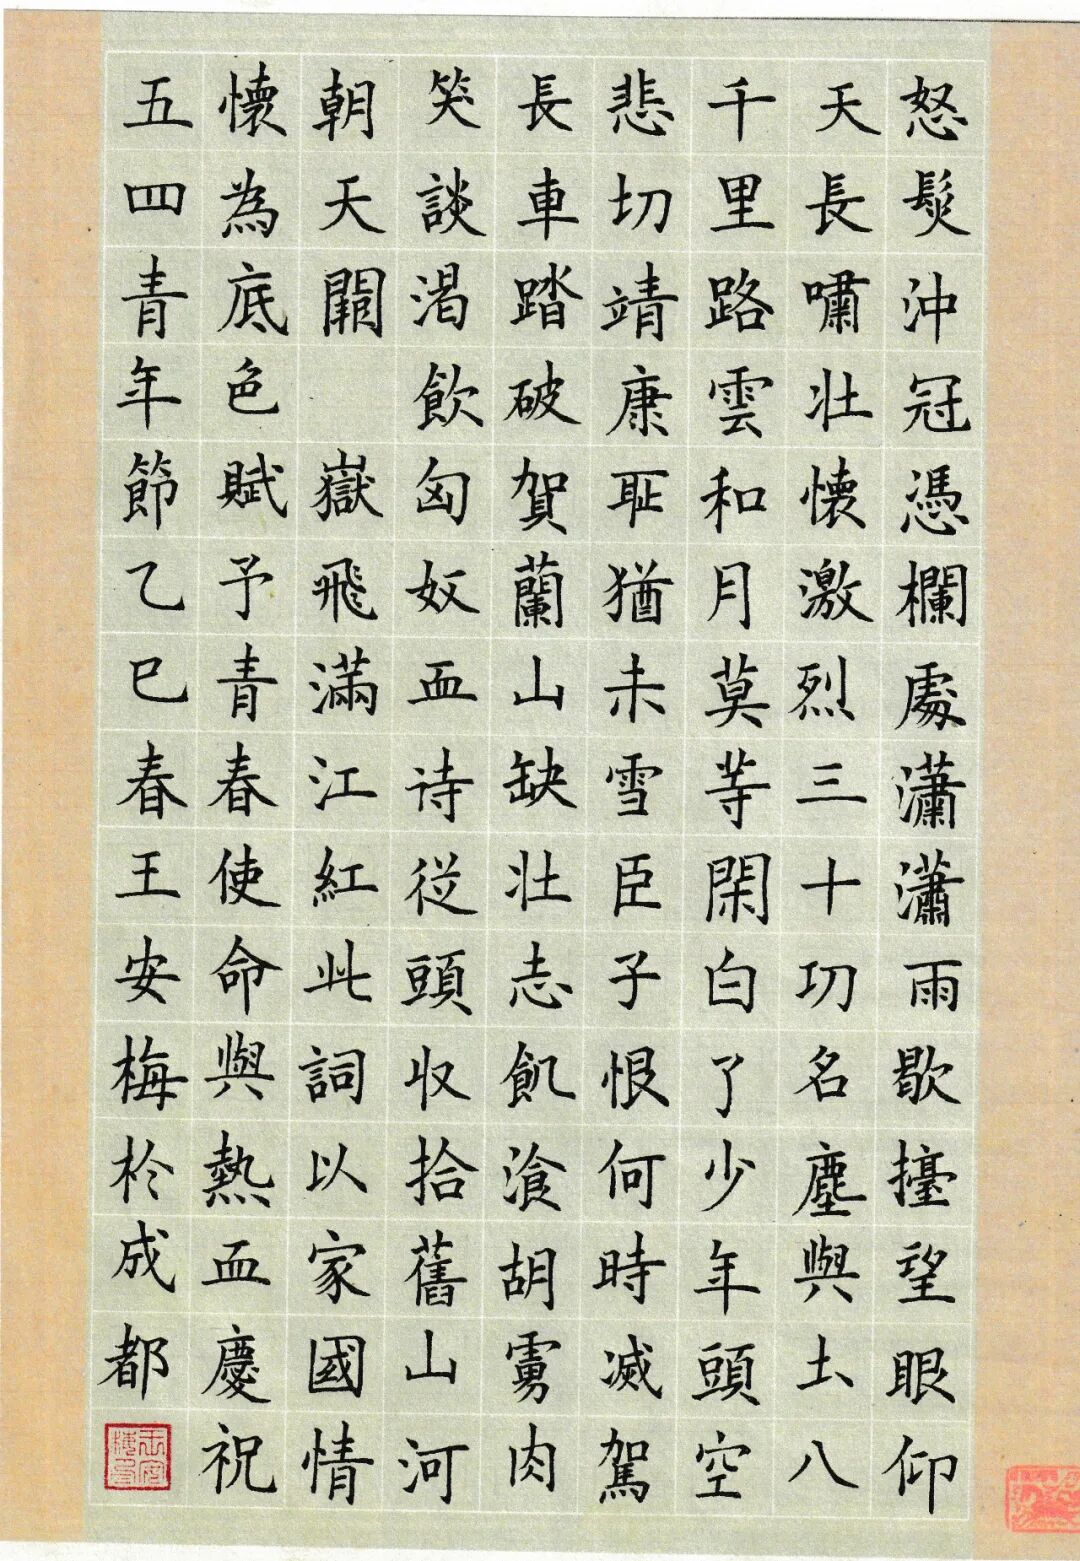 怒髮沖冠憑欄處瀟瀟雨歇擡望眼仰
天長嘯壯懷激烈三十功名塵與土八
千里路雲和月莫等閑白了少年頭空
悲切靖康耻猶未雪臣子恨何時滅駕
長車踏破賀蘭山缺壯志飢湌胡虜肉
笑談渴飲匈奴血待從頭收拾舊山河
朝天闕 嶽飛滿江紅此詞以家國情
懷為底色賦予青春使命與熱血慶祝
五四青年節乙巳春王安梅於成都